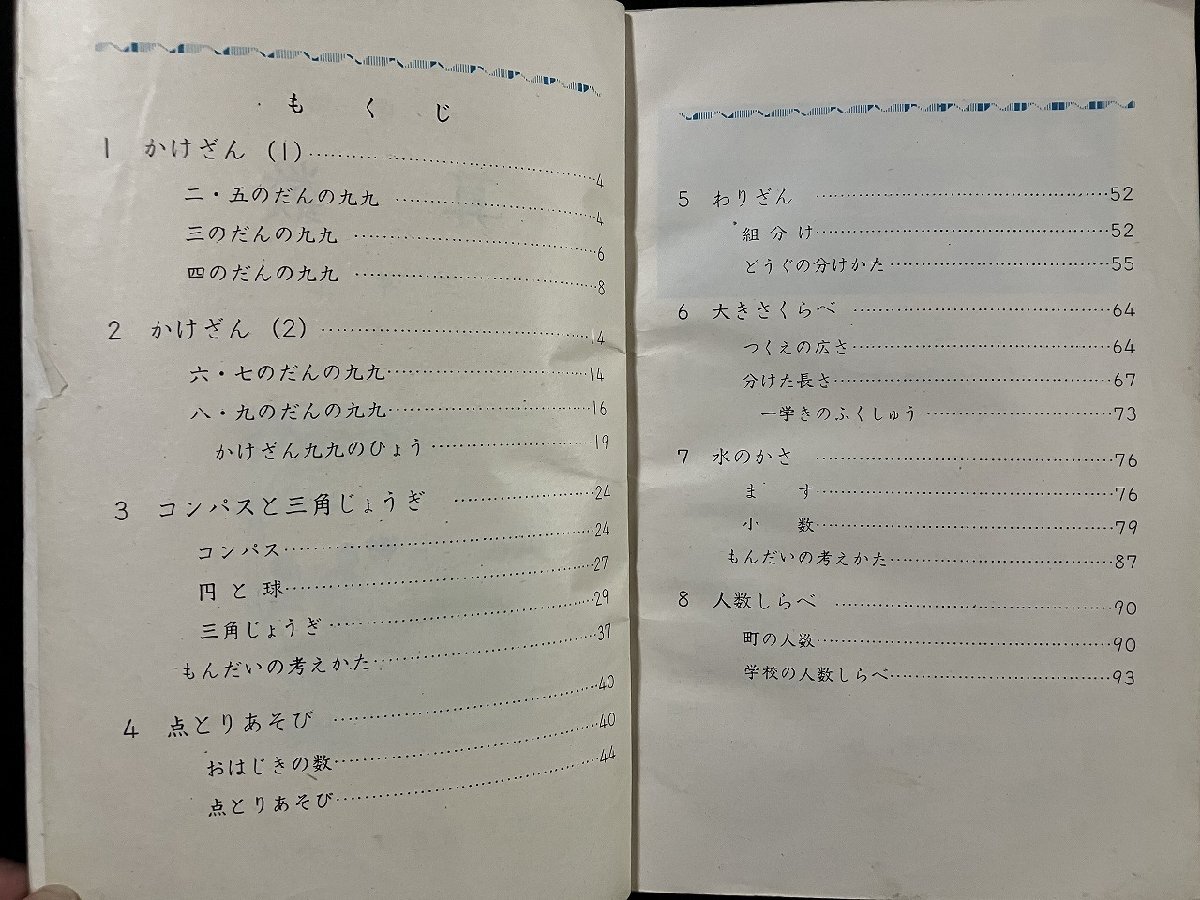 もくじ
1 かけざん (1)……4
二・五のだんの九九……4
三のだんの九九……6
四のだんの九九……8
2 かけざん (2)……14
六・七のだんの九九……14
八・九のだんの九九……16
かけざん九九のひょう……19
3 コンパスと三角じょうぎ……24
コンパス……24
円と球……27
三角じょうぎ……29
もんだいの考えかた……37
4 点とりあそび……40
おはじきの数……40
点とりあそび……44
5 わりざん……52
組分け……52
どうぐの分けかた……55
6 大きさくらべ……64
つくえの広さ……64
分けた長さ……67
一学きのふくしゅう……73
7 水のかさ……76
ます……76
小数……79
もんだいの考えかた……87
8 人数しらべ……90
町の人数……90
学校の人数しらべ……93